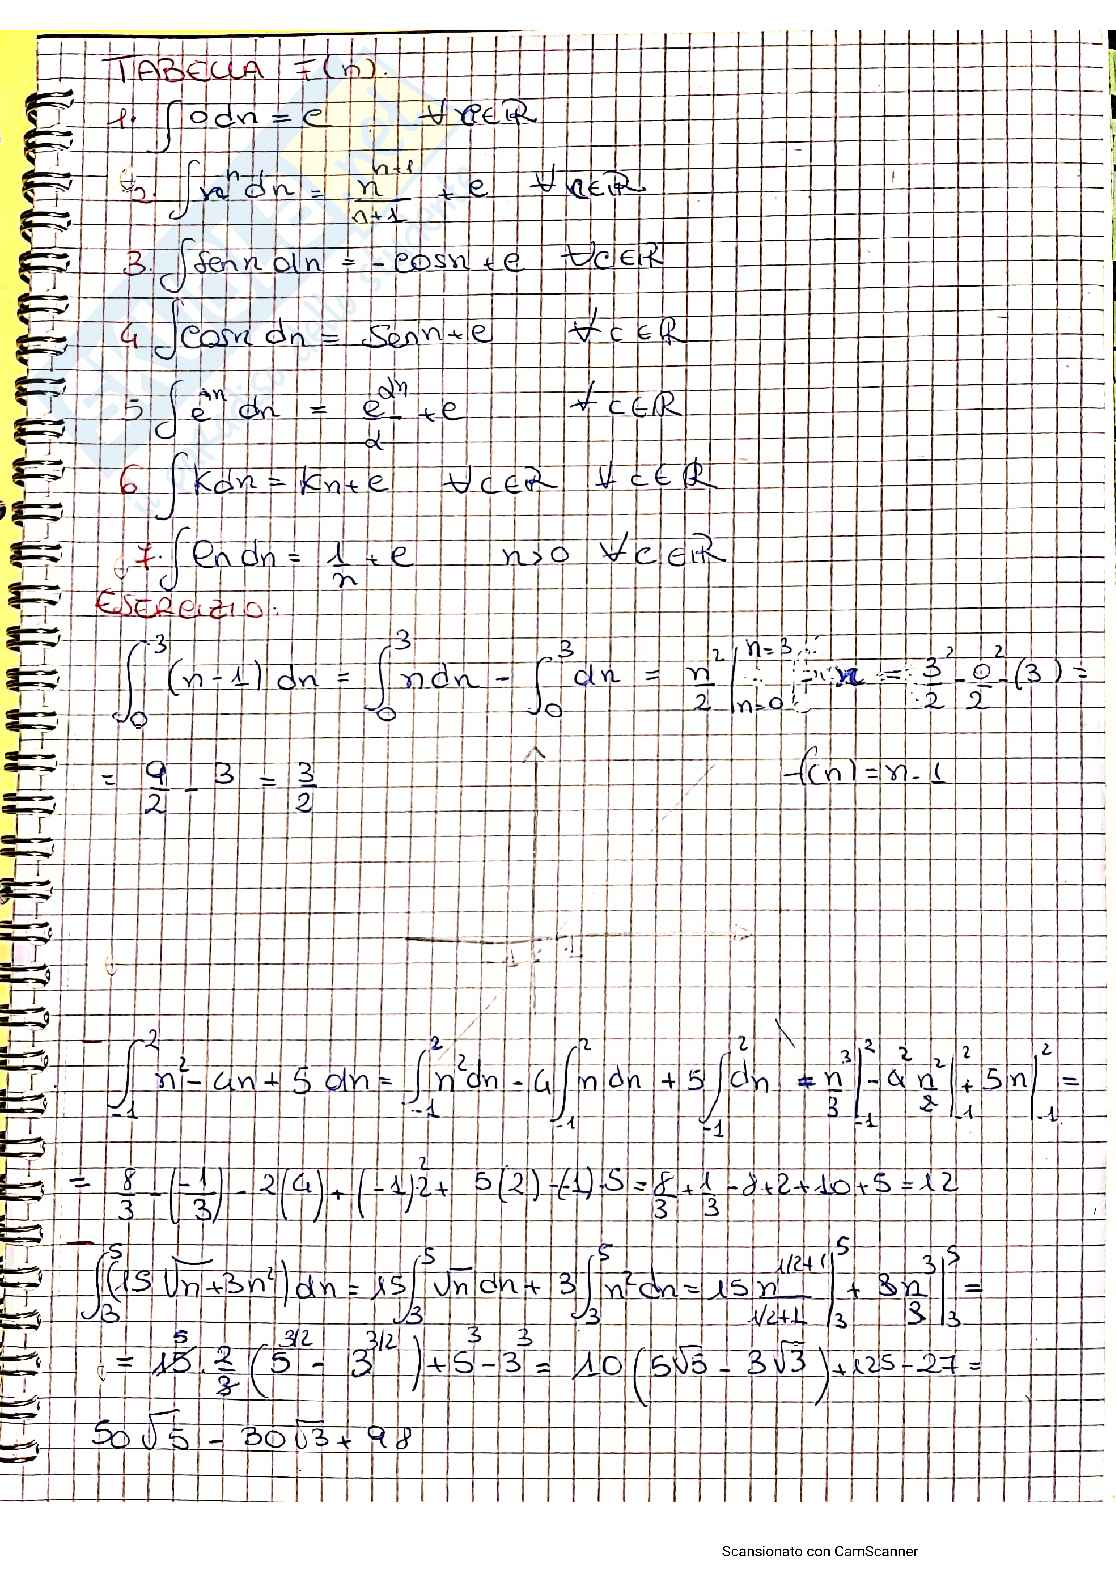 TABELLA F(n).
1. ∫ 0 dn = c ∀ c∈ℝ
2. ∫ n^n dn = n^(n+1)/(n+1) + c ∀ c∈ℝ
3. ∫ sen n dn = -cos n + c ∀ c∈ℝ
4 ∫ cos n dn = sen n + c ∀ c∈ℝ
5 ∫ e^(αn) dn = e^(αn)/α + c ∀ c∈ℝ
6 ∫ k dn = kn + c ∀ c∈ℝ ∀ c∈ℝ
7. ∫ ln dn = 1/n + c n>0 ∀ c∈ℝ
ESERCIZIO:
∫_0^3 (n-1) dn = ∫_0^3 n dn - ∫_0^3 dn = n²/2 |_(n=0)^(n=3) - n = 3²/2 - 0²/2 - (3) =
= 9/2 - 3 = 3/2 f(n) = n-1
∫_-1^2 n² - 4n + 5 dn = ∫_-1^2 n² dn - 4 ∫_-1^2 n dn + 5 ∫_-1^2 dn = n³/3 |_-1^2 - 4² n²/2 |_-1^2 + 5n |_-1^2 =
= 8/3 - (-1/3) - 2(4) + (-1)² 2 + 5(2) - (-1)·5 = 8/3 + 1/3 - 8 + 2 + 10 + 5 = 12
∫_3^5 (15 √n + 3n²) dn = 15 ∫_3^5 √n dn + 3 ∫_3^5 n² dn = 15 n^(1/2+1)/(1/2+1) |_3^5 + 3n³/3 |_3^5 =
= 15⁵ · 2/3 (5^(3/2) - 3^(3/2)) + 5³ - 3³ = 10 (5√5 - 3√3) + 125 - 27 =
50√5 - 30√3 + 98
Scansionato con CamScanner